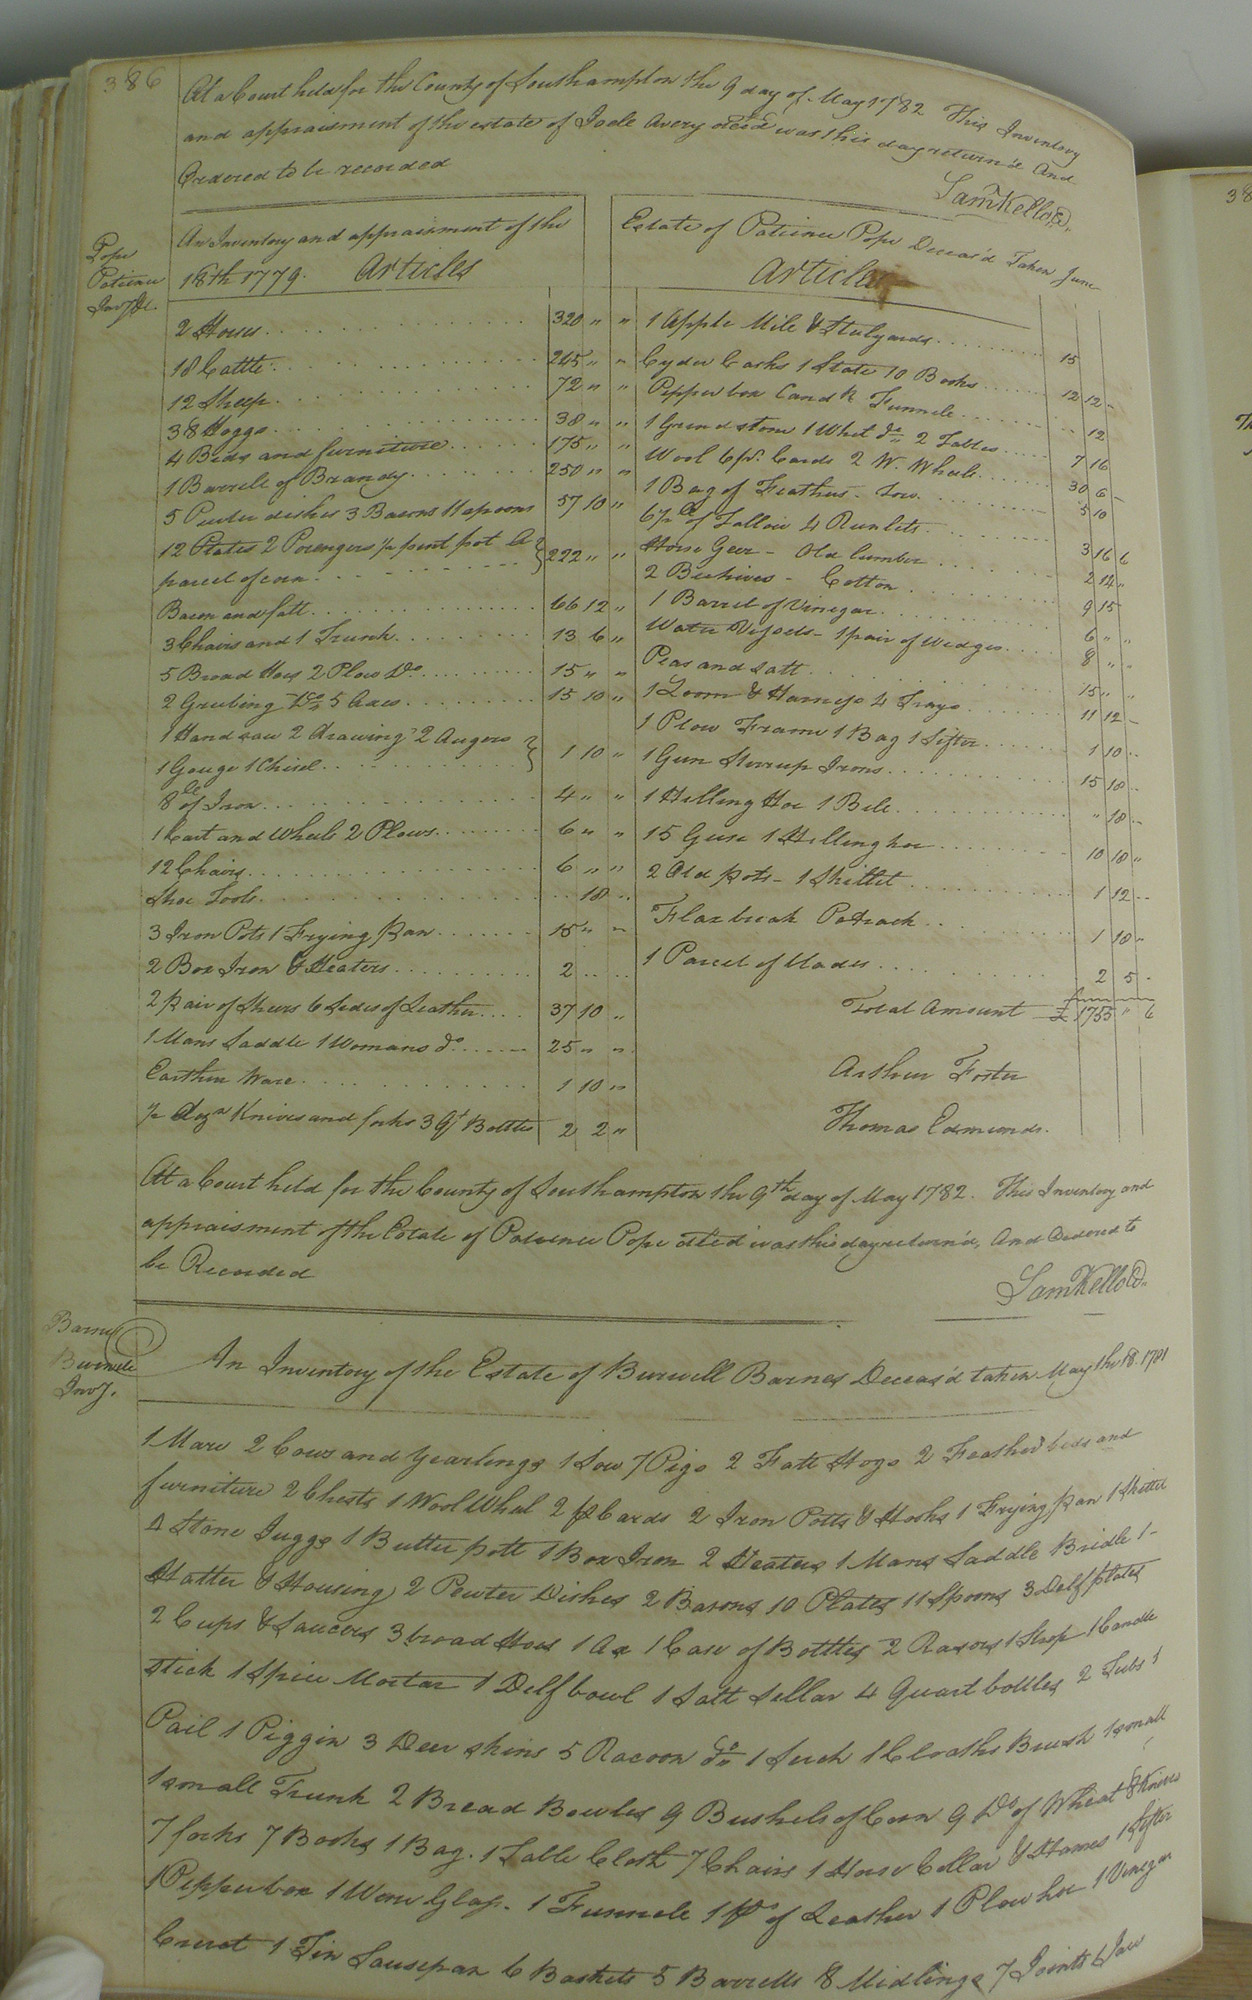 386
At a Court held for the County of Southampton the 9 day of May 1782 This Inventory
and appraisment of the estate of Joele Avery decd was this day return'd And
Ordered to be recorded
Sam Kello Ct.
Pope
Patience
Inv.y &c.
An Inventory and appraisment of the Estate of Patience Pope Deceas'd Taken June
18th 1779. Articles
2 Horses 320 " "
18 Cattle 245 " "
12 Sheep 72 " "
38 Hoggs 38 " "
4 Beds and furniture 175 " "
1 Barrele of Brandy 250 " "
5 Pewter dishes 3 Basons 11 Spoons 57 10 "
12 Plates 2 Porengers ½ pint pot &
parcel of corn 222 " "
Bacon and fatt 66 12 "
3 Chairs and 1 Trunk 13 6 "
5 Broad Hoes 2 Plow Do 15 " "
2 Grubing Do 5 axes 15 10 "
1 Hand saw 2 Drawing 2 Augers
1 Gouge 1 Chisel 1 10 "
8 lb of Iron 4 " "
1 Cart and Wheels 2 Plows 6 " "
12 Chairs 6 " "
Shoe Tools 18
3 Iron Pots 1 Frying pan 15 " "
2 Box Iron & Heaters 2
2 pair of Sheers 6 Sides of Leather 37 10 "
1 Mans Saddle 1 Womans do 25 " "
Earthen Ware 1 10 "
½ dozn Knives and forks 3 Qt Bottles 2 2 "
Articles
1 Apple Mile & Stulyards 15
Cyder Casks 1 Slate 10 Books 12 12
Pepper box Candk Funnele 12
1 Grindstone 1 Whet do 2 Tables 7 16
Wool 6 pr. Cards 2 W. Wheels 30 6
1 Bag of Feathers. Tow 5 10
67 lb of Tallow 4 Runlets 3 16 6
Horse Geer - Old lumber 2 14 "
2 Beehives - Cotton 9 15
1 Barrel of Vinegar 6 " "
Water Vessels - 1 pair of Wedges 8 " "
Peas and Salt 15 " "
1 Loom & Harness 4 Trays 11 12
1 Plow Frame 1 Bag 1 Sifter 1 10
1 Gun Stirrup Irons 15 18
1 Hilling Hoe 1 Bell " 18
15 Geese 1 Hilling hoe 10 18 "
2 Old pots - 1 Skillet 1 12
Flax break Potrack 1 10 "
1 Parcel of blades 2 5
Total Amount £ 1755 " 6
Arthur Foster
Thomas Edmunds.
At a Court held for the County of Southampton the 9th day of May 1782. This Inventory and
appraisment of the Estate of Patience Pope decd was this day return'd, And Ordered to
be Recorded
Sam Kello Ct.
Barnes
Burwele
Inv.y.
An Inventory of the Estate of Burwell Barnes Deceas'd taken May the 18. 1781
1 Mare 2 Cows and yearlings 1 Sow 7 Pigs 2 Fatt Hogs 2 Feather beds and
furniture 2 Chests 1 Wool Wheel 2 pr Cards 2 Iron Potts & Hooks 1 Frying pan 1 Skillet
4 Stone Juggs 1 Butter pott 1 Box Iron 2 Heaters 1 Mans Saddle Bridle 1
Halter & Housing 2 Pewter Dishes 2 Basons 10 Plates 11 Spoons 3 Delf plates
2 Cups & Saucers 3 broad Hoes 1 Ax 1 Case of Bottles 2 Rasors 1 Strop 1 Candle
stick 1 Spice Mortar 1 Delf bowl 1 Salt Sellar 4 Quart bottles 2 Tubs 1
Pail 1 Piggin 3 Deer skins 5 Racoon do 1 1 Cloaths Brush 1 small
1 small Trunk 2 Bread Bowles 9 Bushels of Corn 9 Do of Wheat 8 Knives
7 forks 7 Books 1 Bag. 1 Table Cloth 7 Chairs 1 Horse Collar & Hames 1 Sifter
1 Pepper box 1 Wine Glass. 1 Funnele 1 ps of Leather 1 Plow hoe 1 Vinegar
Cruet 1 Tin Sausepan 6 Baskets 5 Barrells 8 Midlings 7 Joints 6 Jaw